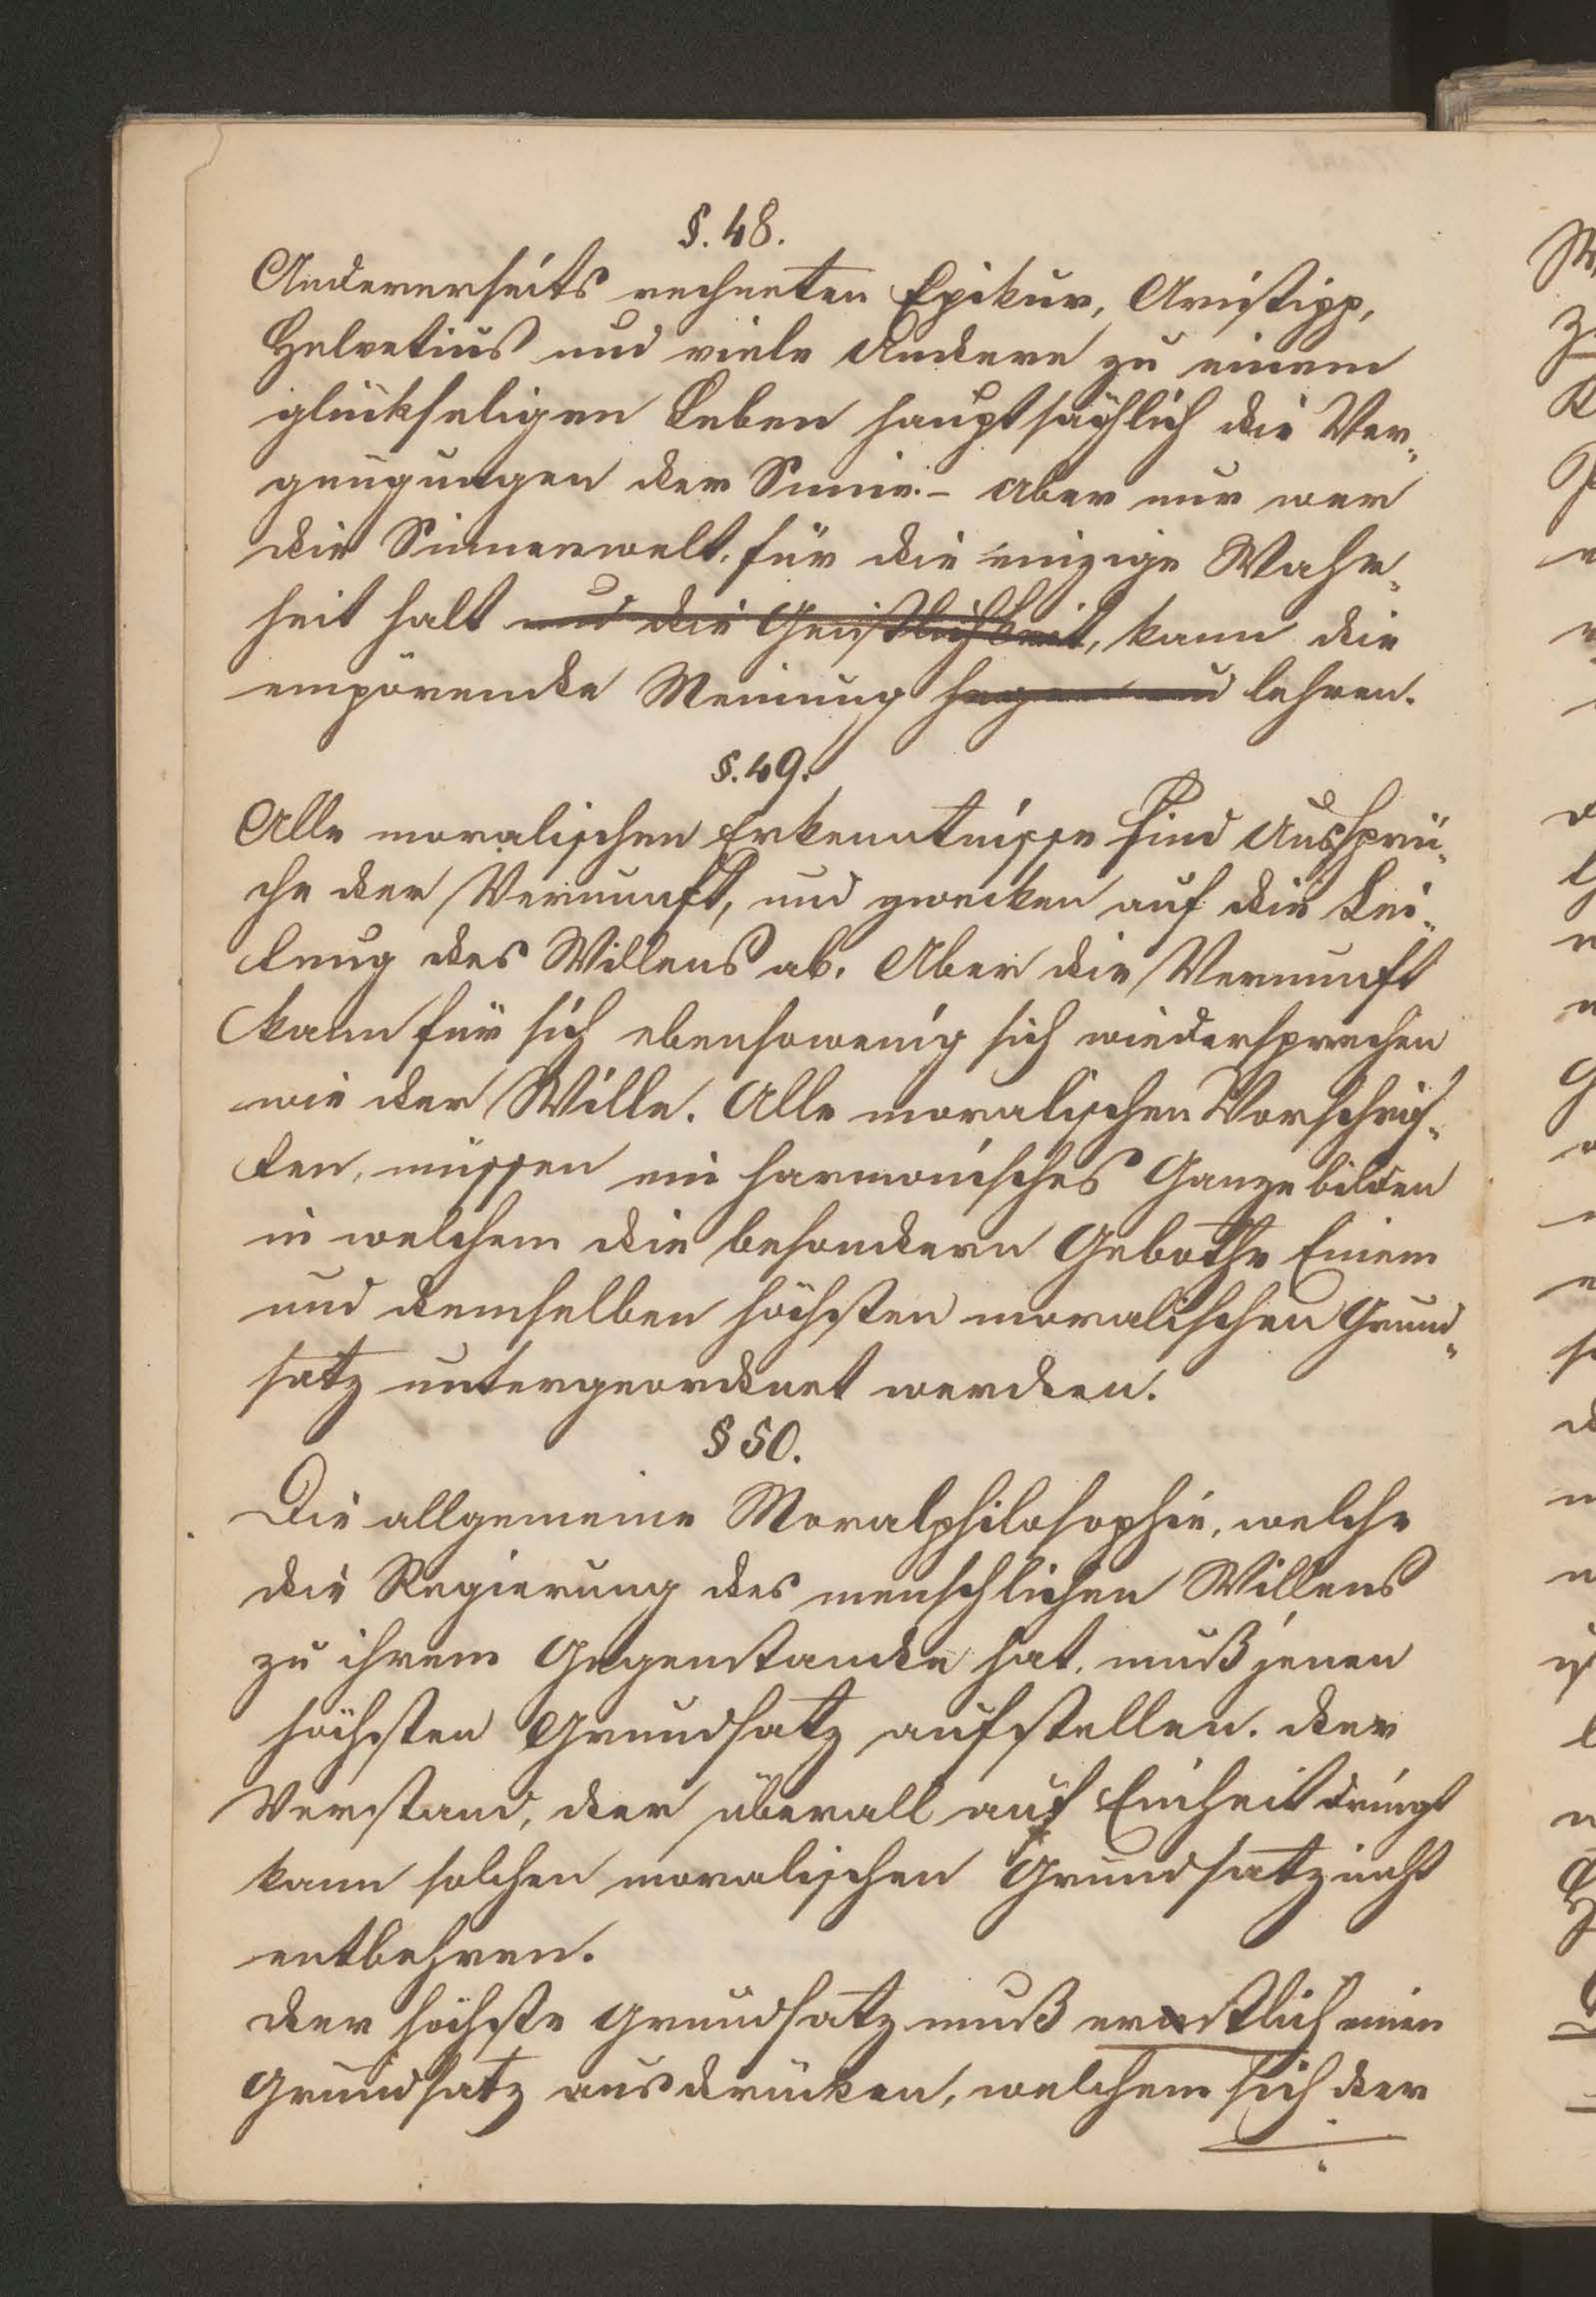 §. 48.
Andererseits rechneten Epikur, Aristipp,
Helvetius und viele Andere zu einem
glückseligen Leben hauptsächlich die Ver-
gnügungen der Sinne. – aber nur wer
die Sinnenwelt, für die einzige Wahr-
heit halt und die Geistlichkeit, kann die
empörende Meinung hegen und lehren.
§. 49.
Alle moralischen Erkenntnisse sind Aussprü-
che der Vernunft, und zwecken auf die Lei-
tung des Willens ab. Aber die Vernunft
kann für sich ebensowenig sich wiedersprechen
wie der Wille. Alle moralischen Vorschrif-
ten, müssen ein harmonisches Ganze bilden
in welchem die besondern Gebothe Einem
und demselben höchsten moralischen Grund-
satz untergeordnet werden.
§ 50.
Die allgemeine Moralphilosophie, welche
die Regierung des menschlichen Willens
zu ihrem Gegenstande hat, muß jenen
höchsten Grundsatz aufstellen. der
Verstand, der überall auf Einheit dringt
kann solchen moralischen Grundsatz nicht
entbehren.
der höchste Grundsatz muß erstlich einen
Grundsatz ausdrücken, welchem sich der